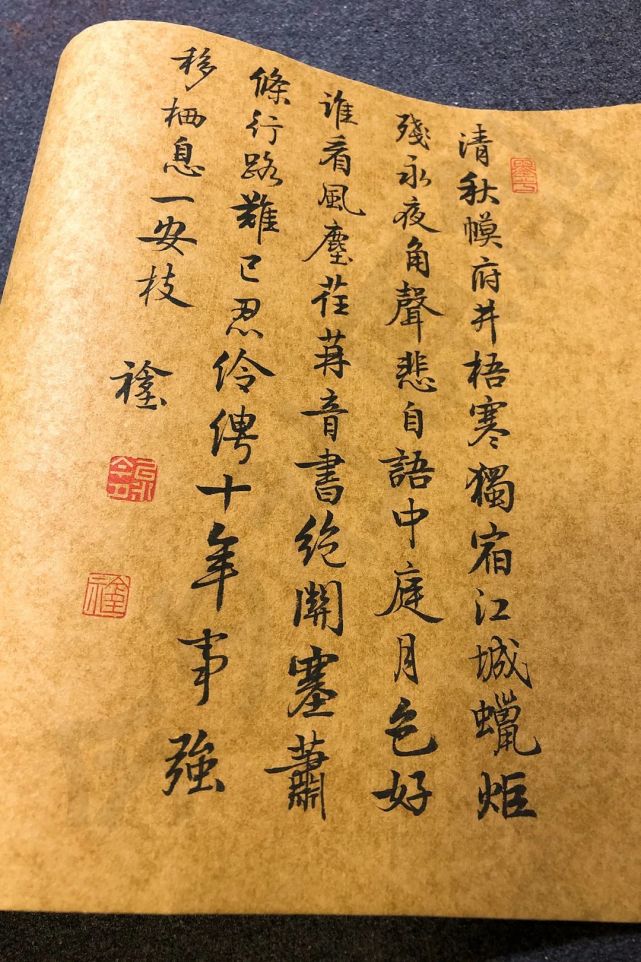 清秋幙府井梧寒獨宿江城蠟炬
殘永夜角聲悲自語中庭月色好
誰看風塵荏苒音書絶關塞蕭
條行路難已忍伶俜十年事強
移栖息一安枝